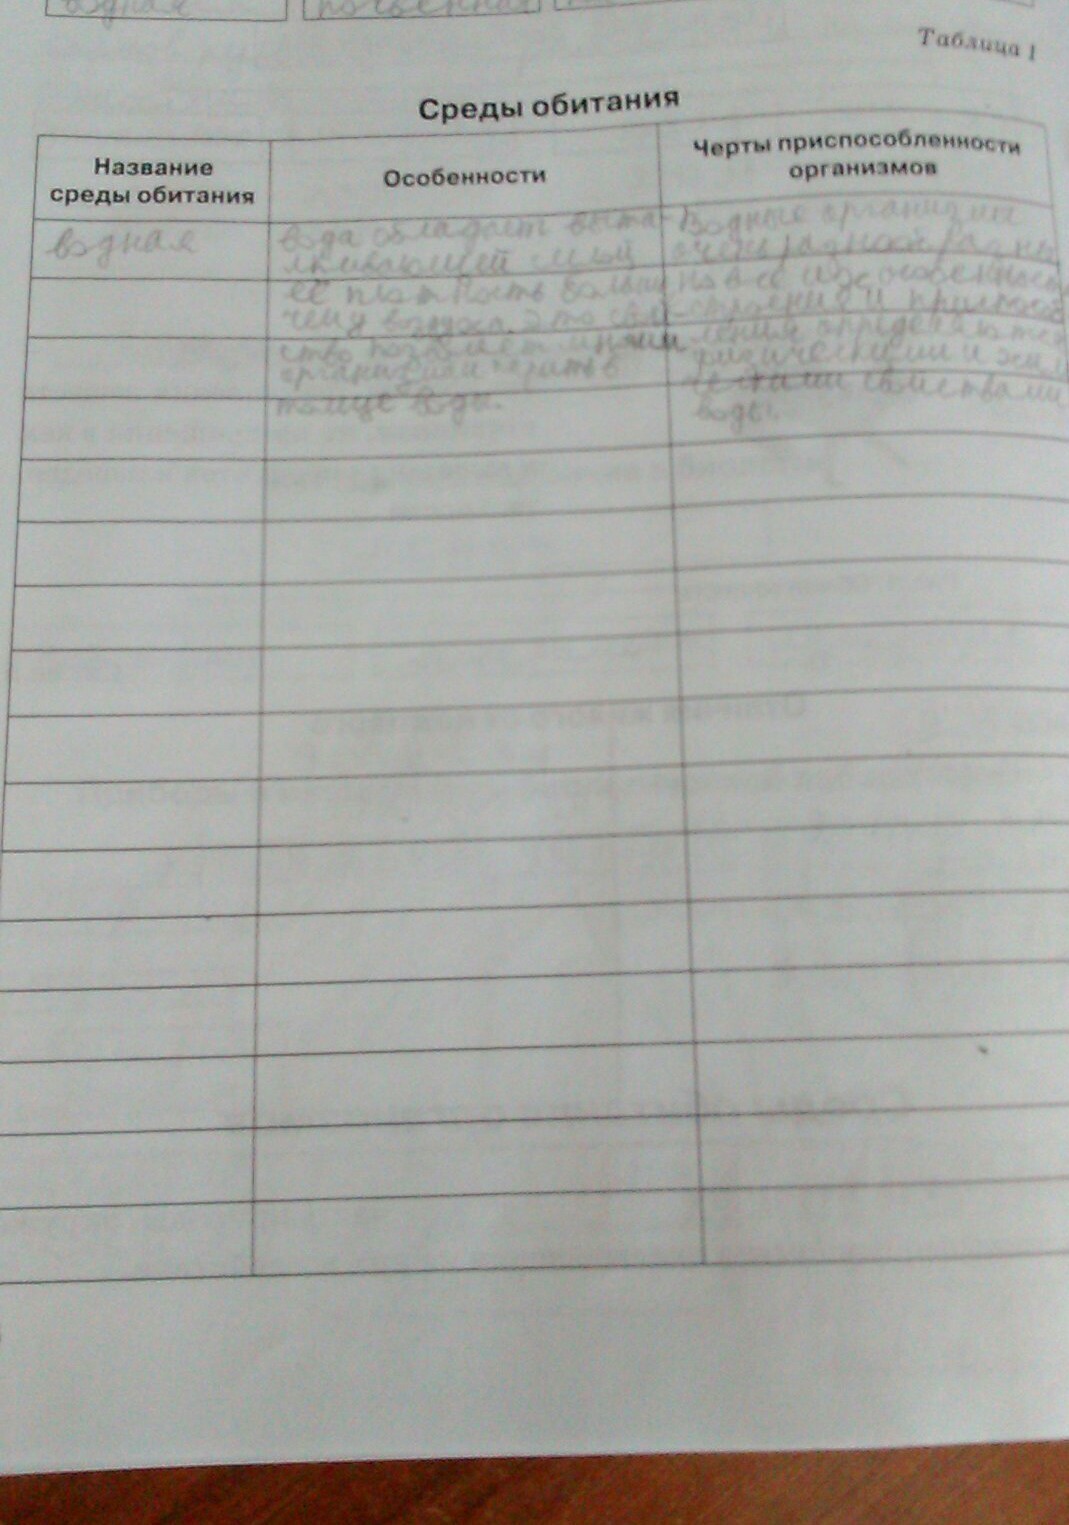 водная
почвенная
Таблица 1
Среды обитания
Название
среды обитания
Особенности
Черты приспособленности
организмов
водная
вода обладает выта-
лкивающей силой
её плотность больше
чем у воздуха. Это свой-
ство позволяет многим
организмам парить в
толще воды.
Водные организмы
очень разнообразны
но все их особенности
строения и приспособ
ления определяются
физическими и хими
ческими свойствами
воды.